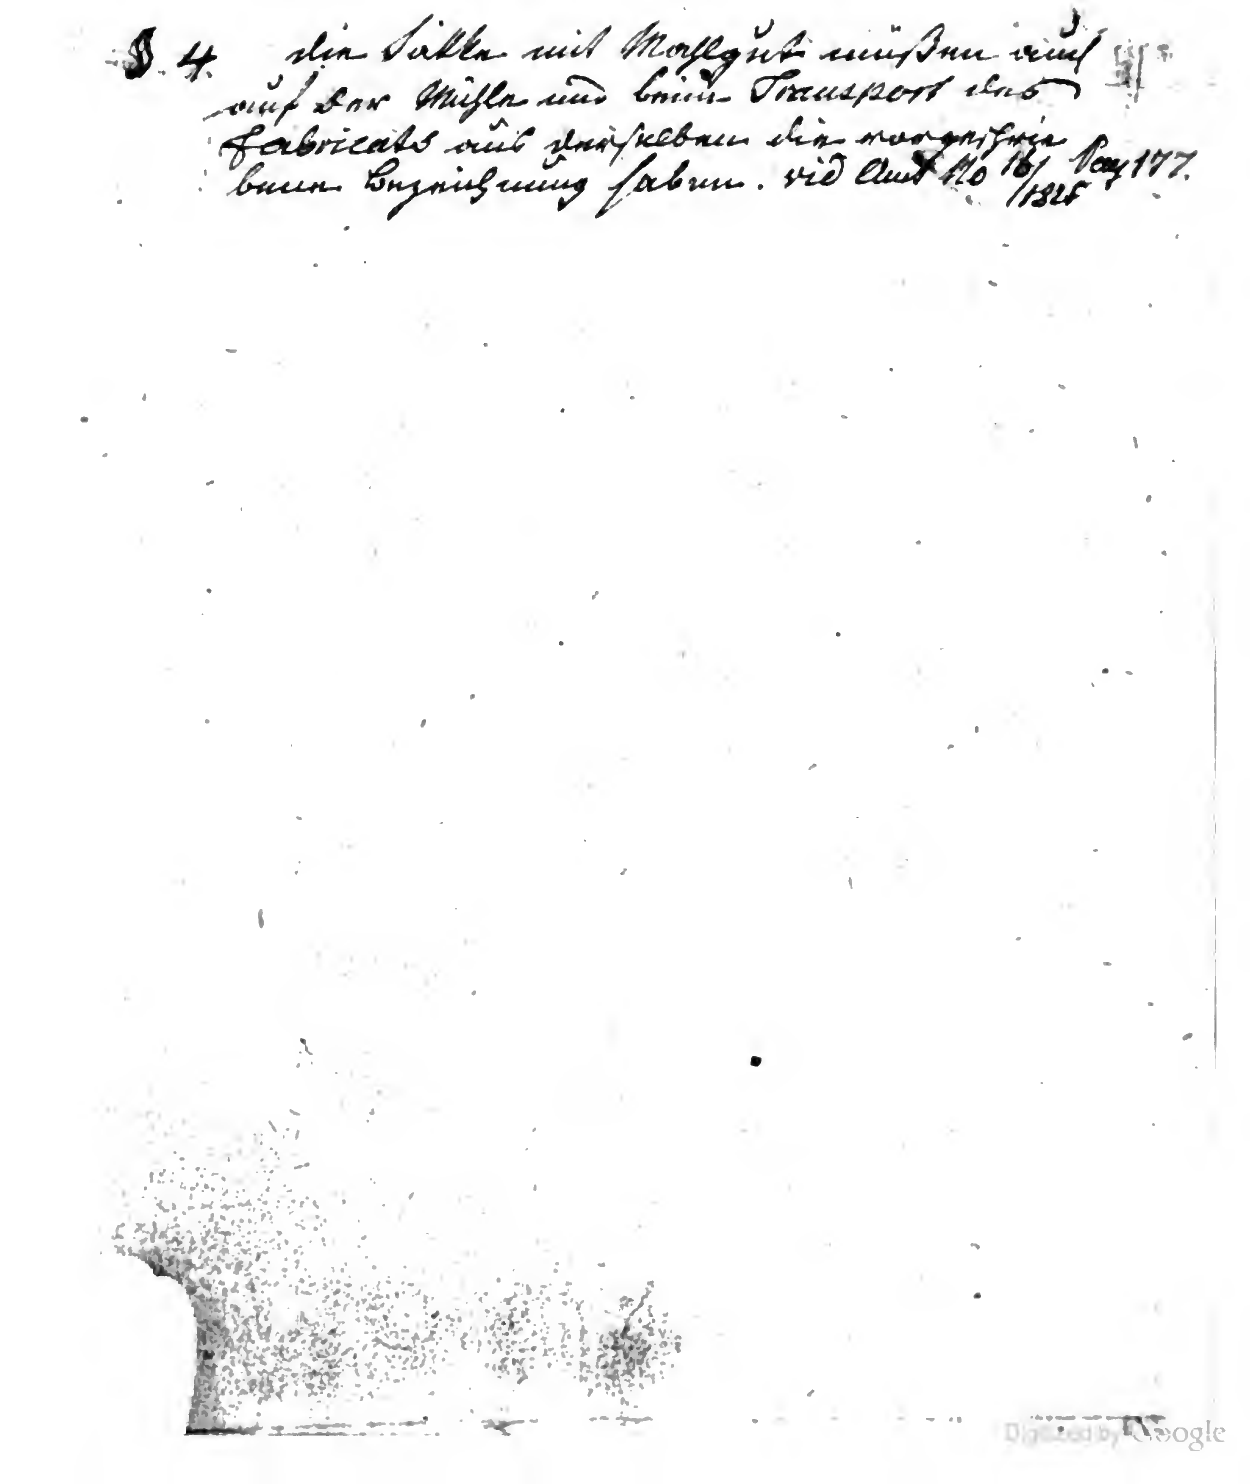 § 4. die Säkke mit Mahlgut müßen auch
auf der Mühle und beim Transport des
Fabricats aus derselben die vorgeschrie
bene Bezeichnung haben. vid No 16/ Pag 177.
Digitized by Google